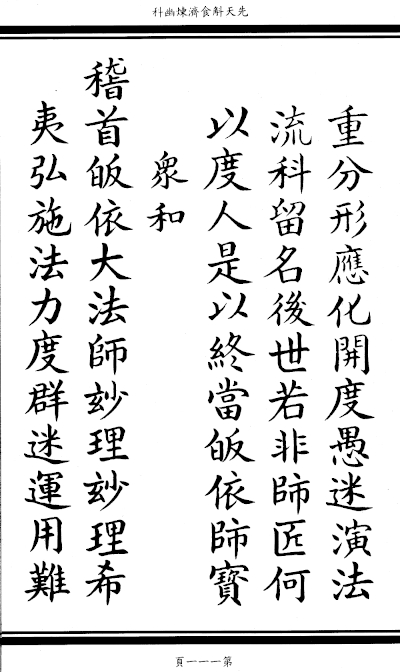 先天斛食濟煉幽科
重分形應化開度愚迷演法
流科留名後世若非師匠何
以度人是以終當皈依師寶
衆和
稽首皈依大法師玅理玅理希
夷弘施法力度群迷運用難
第一一一頁